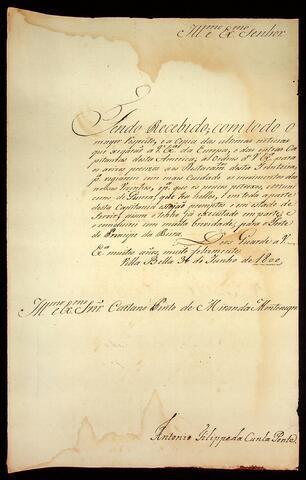 Ill.mo e Ex.mo Senhor
Tendo Recebido, com todo o
mayor respeito, e a Copia das ultimas noticias
que chegárão a V. Ex.ª da Europa, e das outras Ca-
pitanias desta America, as Ordens de V. Ex.ª para
os avizos precizos aos desta Fronteira,
vigiarem com mais cuidado os movimentos dos
nossos
de Guerra, que ha nelles, e em toda a parte
desta Capitania estejão promptos e em estado de
Servir; assim o tenho já executado em parte, e
concluirei com muita brevidade, para o Forte
do Principe da Beira.
Deos Guarde a V.
Ex.ª muitos annos, muito felizmente.
Villa Bella 3 de Junho de 1800,,
Ill.mo e Ex.mo Snr. Caetano Pinto de Miranda Montenegro
Antonio Filippe da Cunha Ponte.